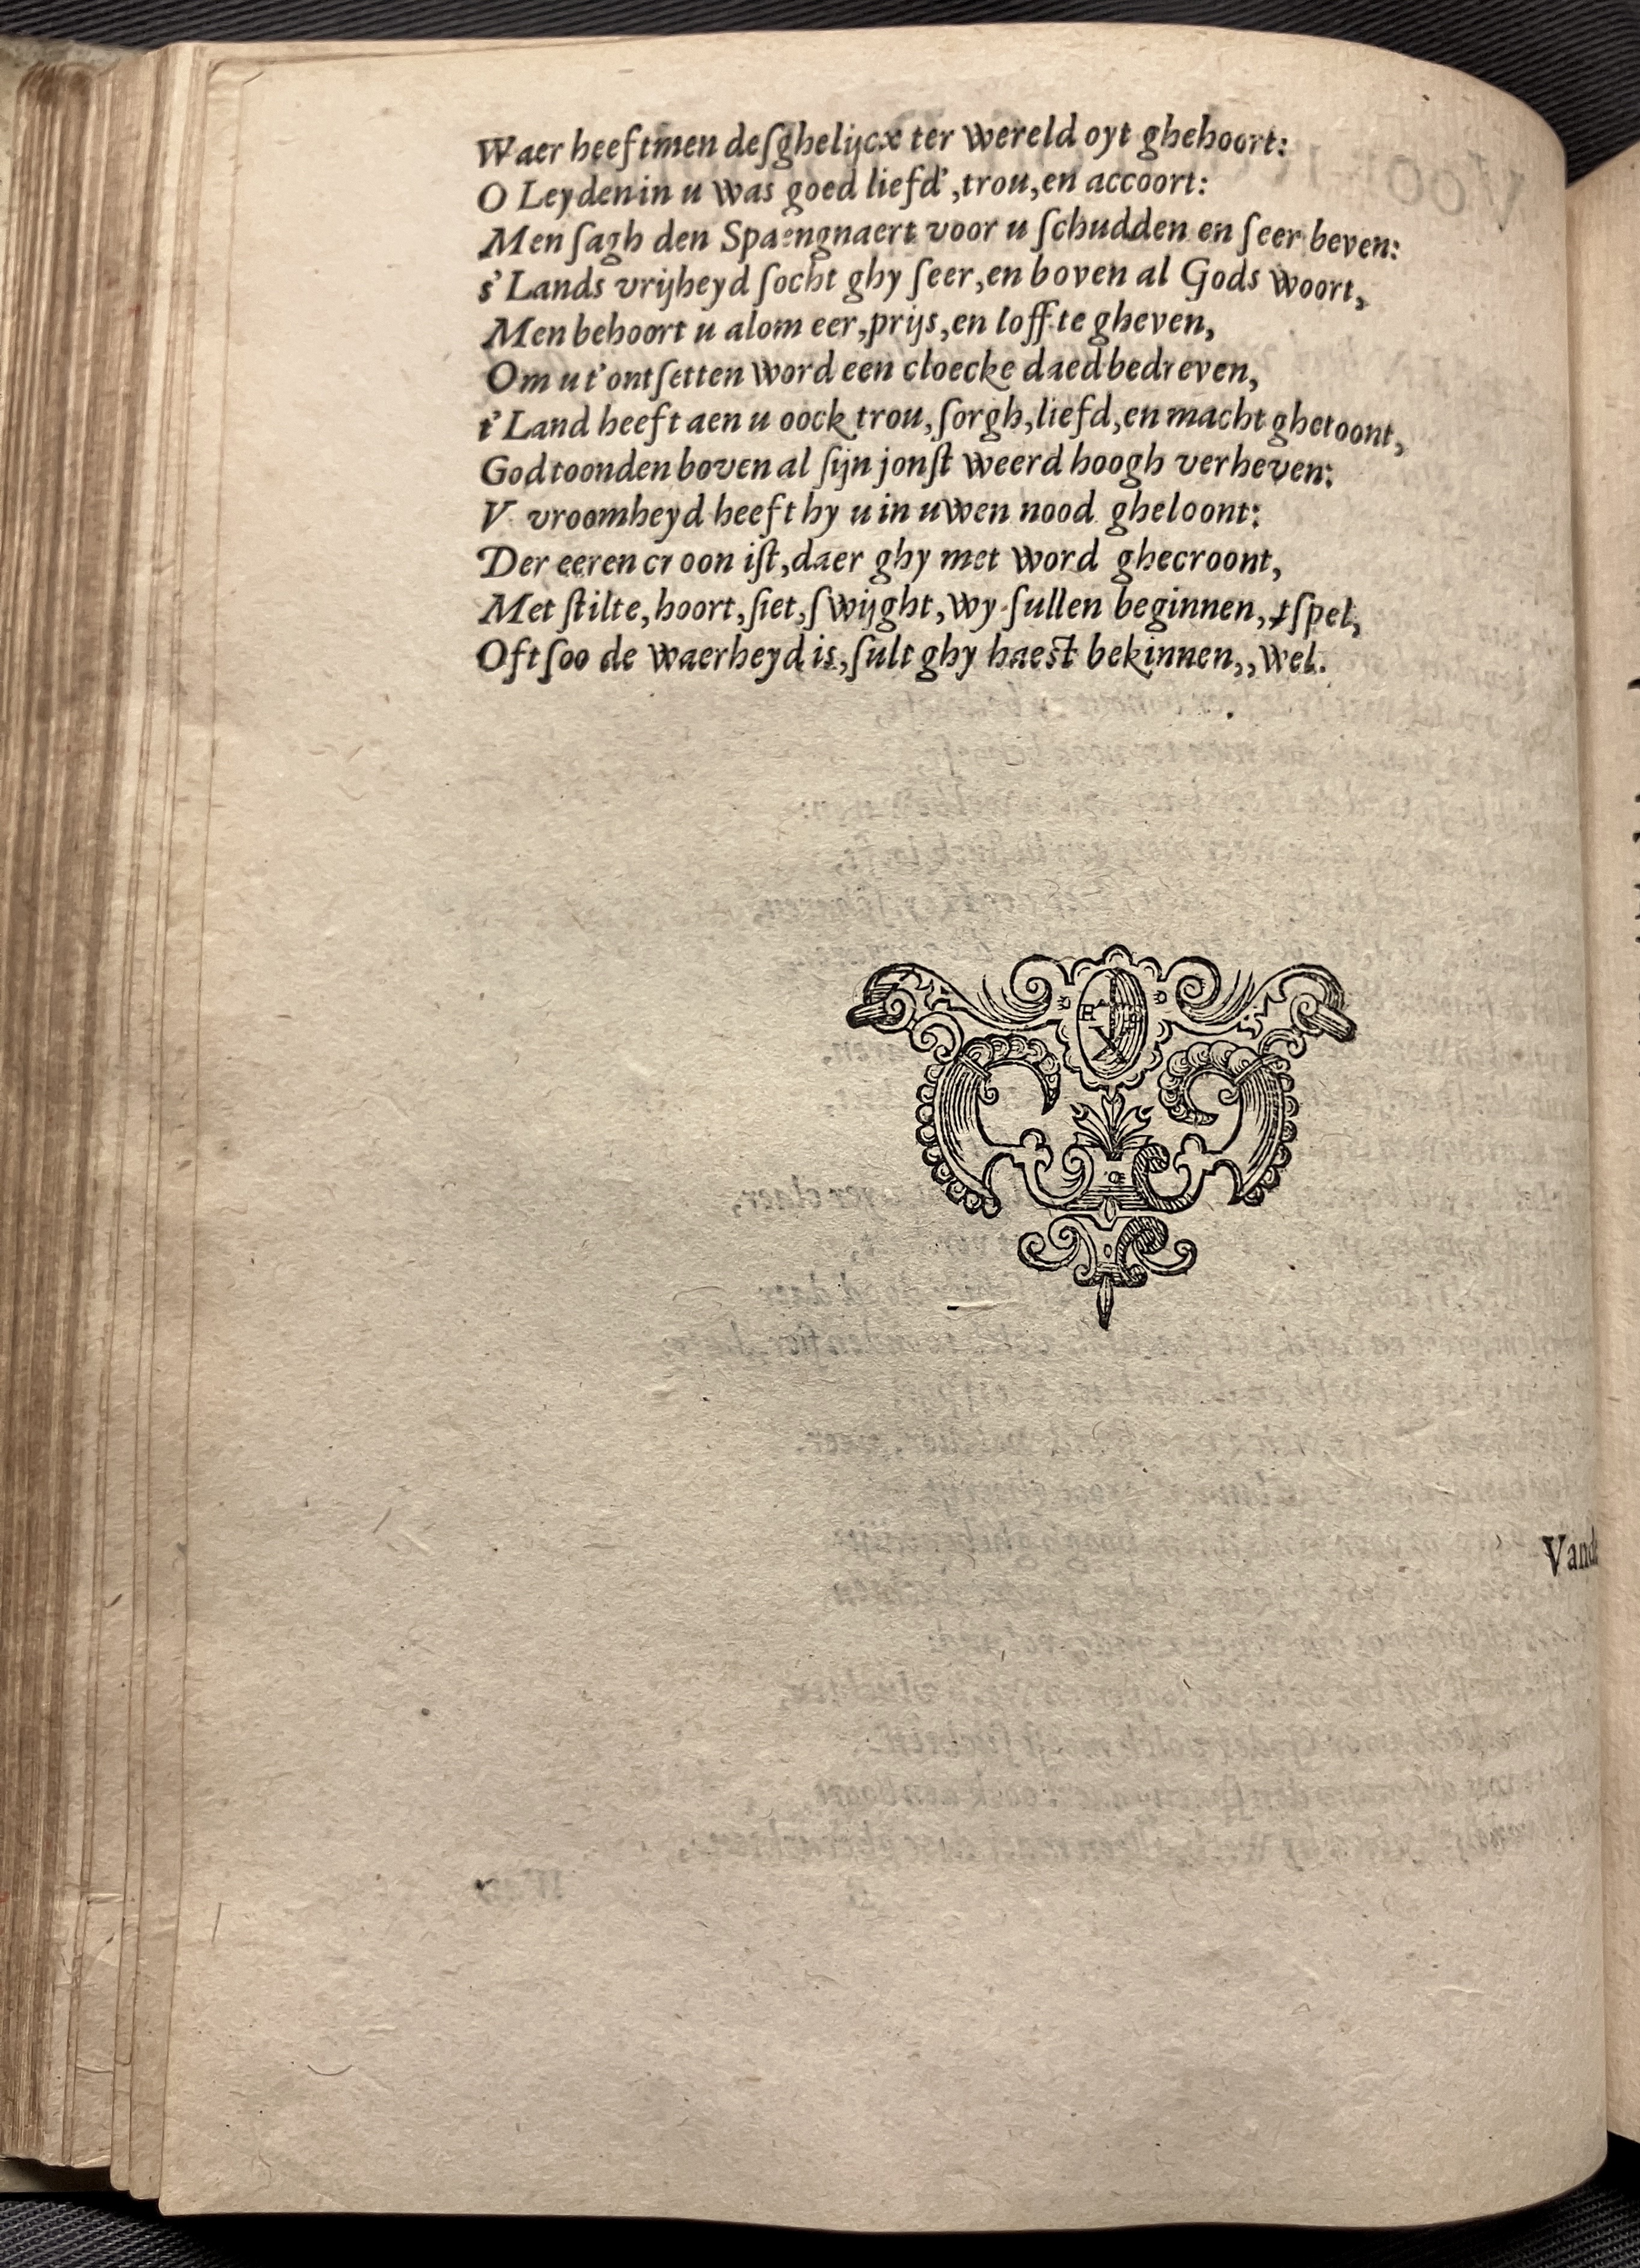 Waer heeftmen deſghelijcx ter wereld oyt ghehoort:
O Leyden in u was goed liefd', trou, en accoort:
Men ſagh den Spaengnaert voor u ſchudden en ſeer beven:
s' Lands vrijheyd ſocht ghy ſeer, en boven al Gods woort,
Men behoort u alom eer, prijs, en loff te gheven,
Om u t'ontſetten word een cloecke daed bedreven,
t' Land heeft aen u oock trou, ſorgh, liefd, en macht ghetoont,
God toonden boven al ſijn jonſt weerd hoogh verheven:
V vroomheyd heeft hy u in uwen nood gheloont:
Der eeren croon iſt, daer ghy met word ghecroont,
Met ſtilte, hoort, ſiet, ſwijght, wy ſullen beginnen,, tſpel,
Oft ſoo de waerheyd is, ſult ghy haeſt bekinnen,, wel.